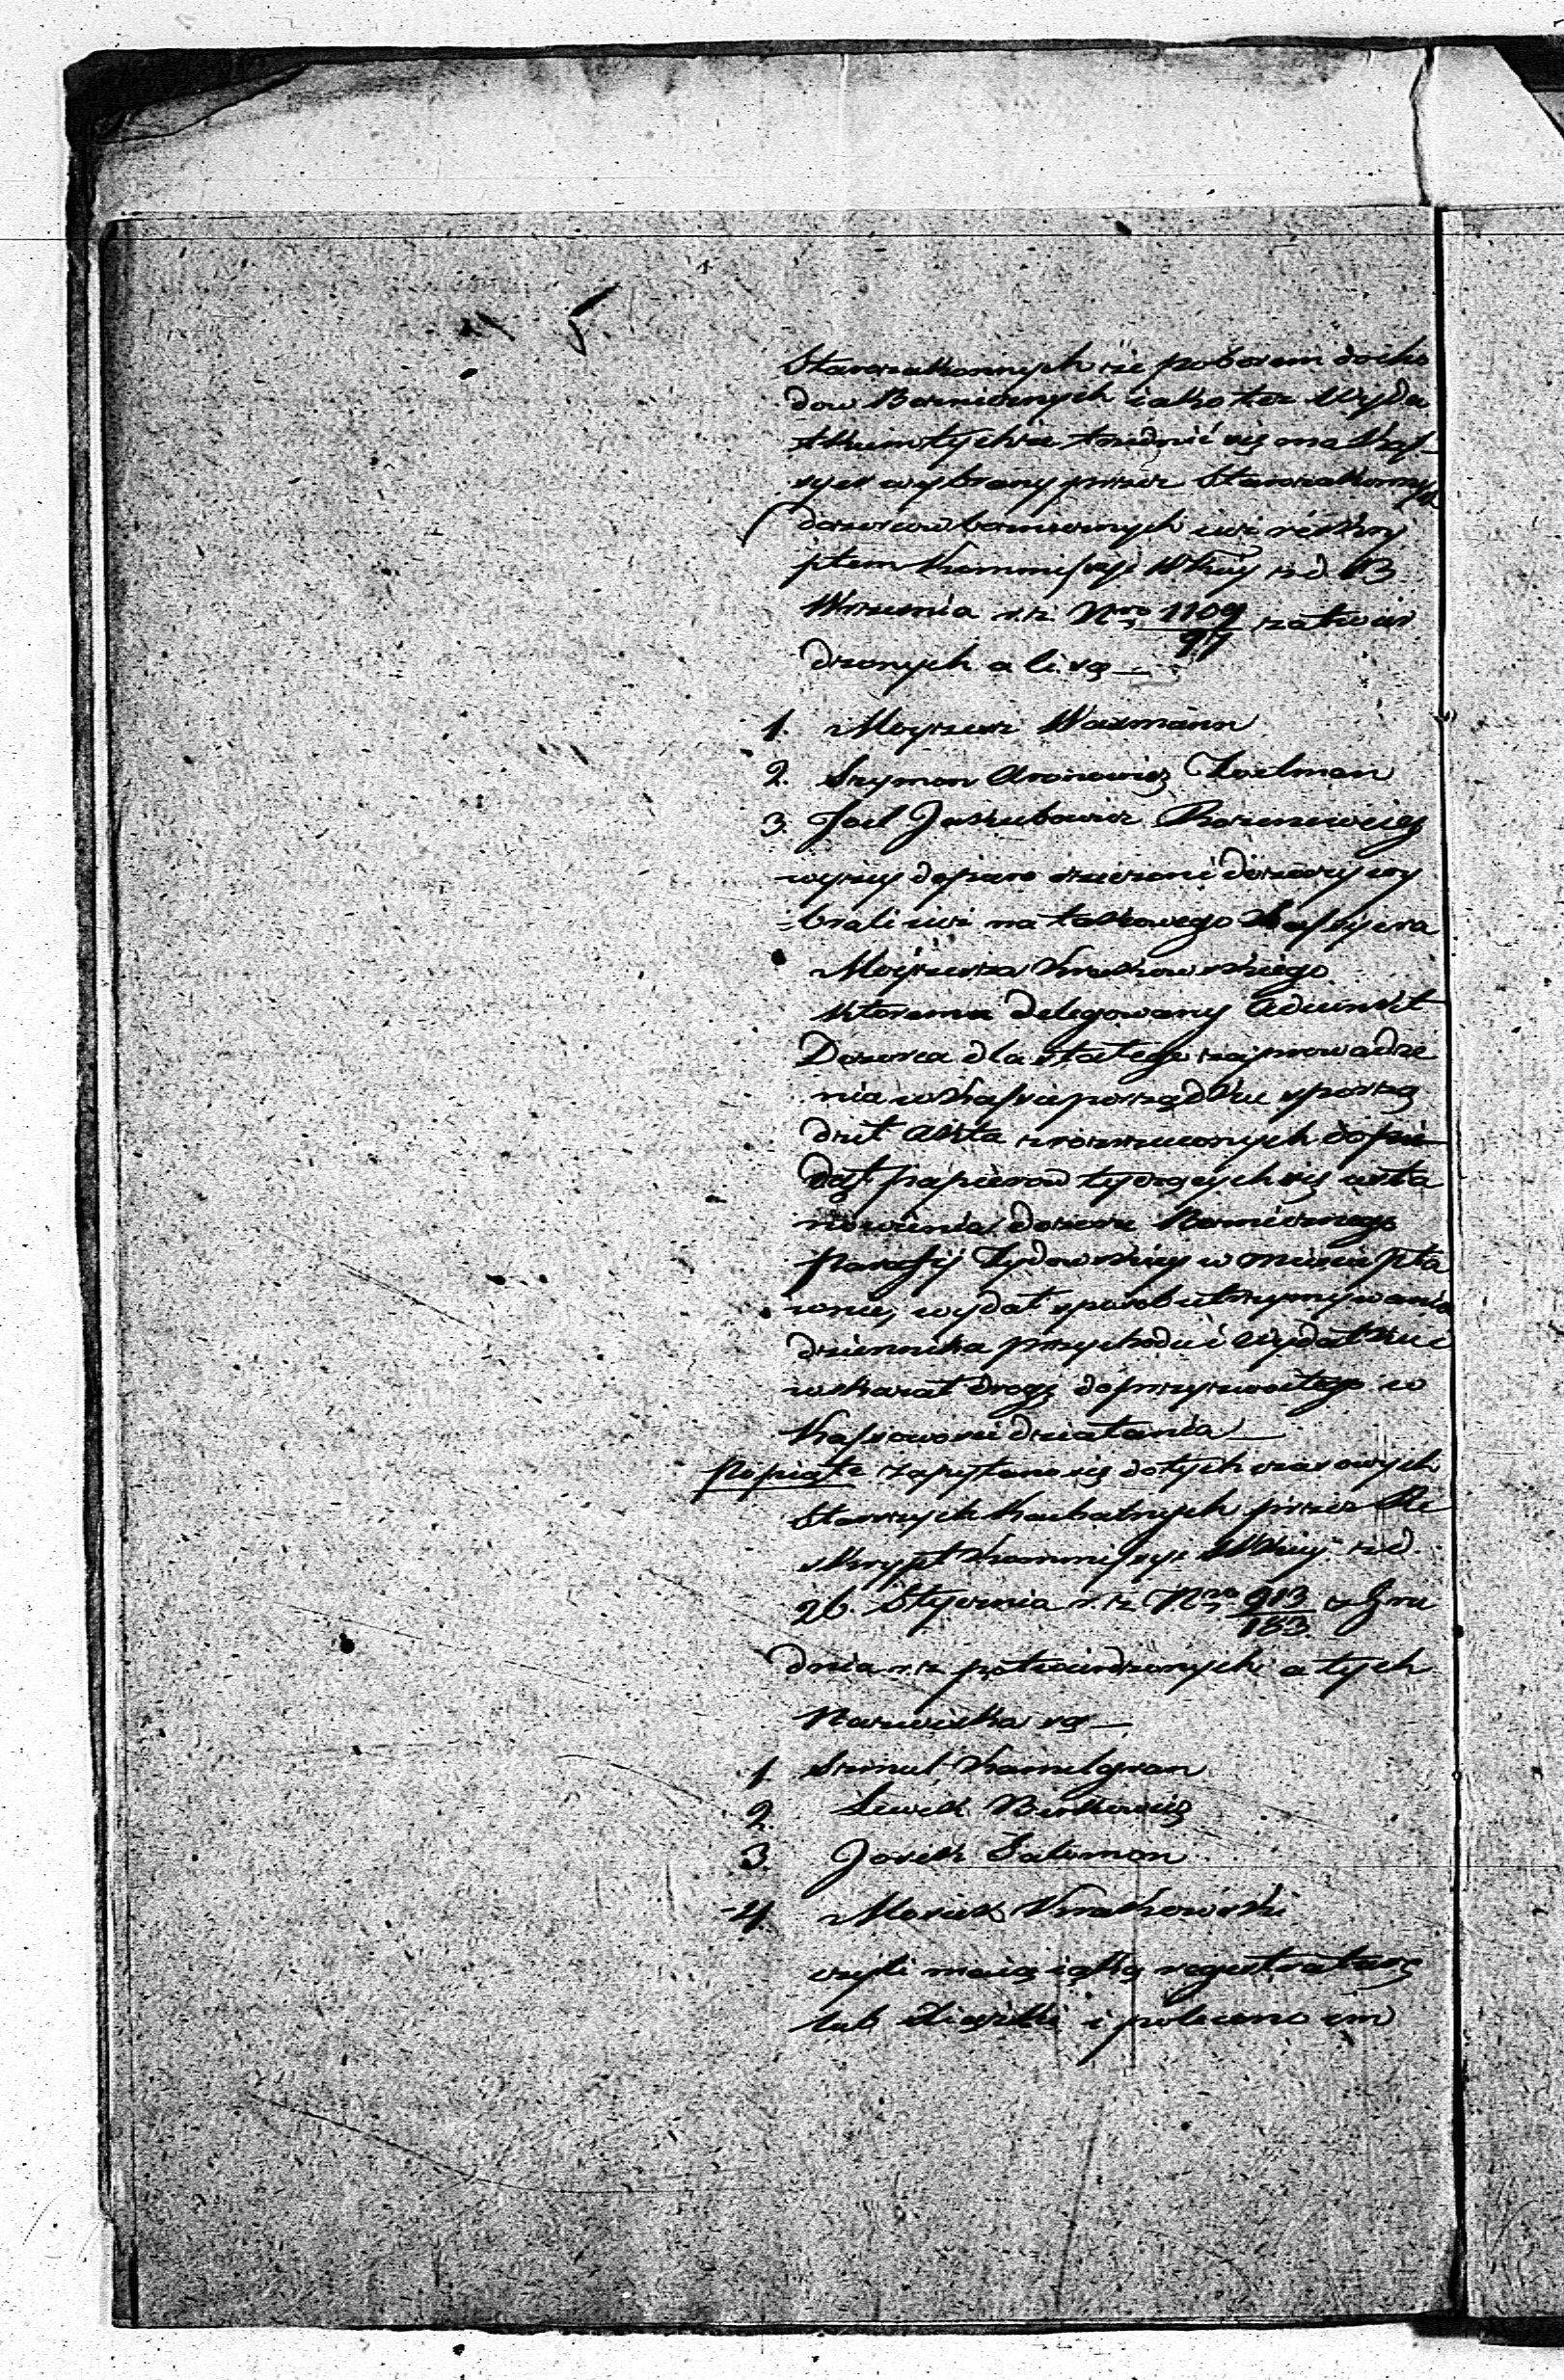 Starozakonnych że poborem docho
dow Bożnicznych iako też Wyda
tkiem tychże trudnić się ma Kas-
syer wybrany przez Starozakonnych
dozorcow boznicznych iuż reskry
ptem Kommissyi Wkiey z d. 13
Wrzesnia r. z. Nro 1109/97 zatwier
dzonych a ci są —
1. Moyzesz Waxmann
2. Szymon Aronowicz Zoelman
3. Joel Jakubowicz Rozeneweig
wyżey dopiero rzeczeni dozorcy wy
=brali iuż na takowego Kassyiera
Moyżesza Krakowskiego
ktoremu delegowany Adiunkt
Dozorca dla stałego zaprowadze
nia w Kassie porządku sporzą
dził Akta z rozrzuconych dopie
dąt papierow tyczących się usta
nowienia dozoru Boznicznego
Parafii Zydowskiey w miescie Pła
wnie, wydał sposob utrzymywania
dziennika przychodu i Wydatku i
wskazał drogę do przyzwoitego w
Kassowosci działania —
Popiąte zapytano się dotychczasowych
Starszych Kachalnych przez Re
skrypt Kommissyi Wkiey z d.
26. Stycznia r. z. Nro 913/183 z Gru
dnia r. z. potwierdzonych a tych
Nazwiska są —
1. Szmul Kamelgran
2. Lewek Berkowicz
3. Josek Salomon
4. Mosiek Krakowski
czyli maią iaką registraturę
lub Xiąszki i polecono im